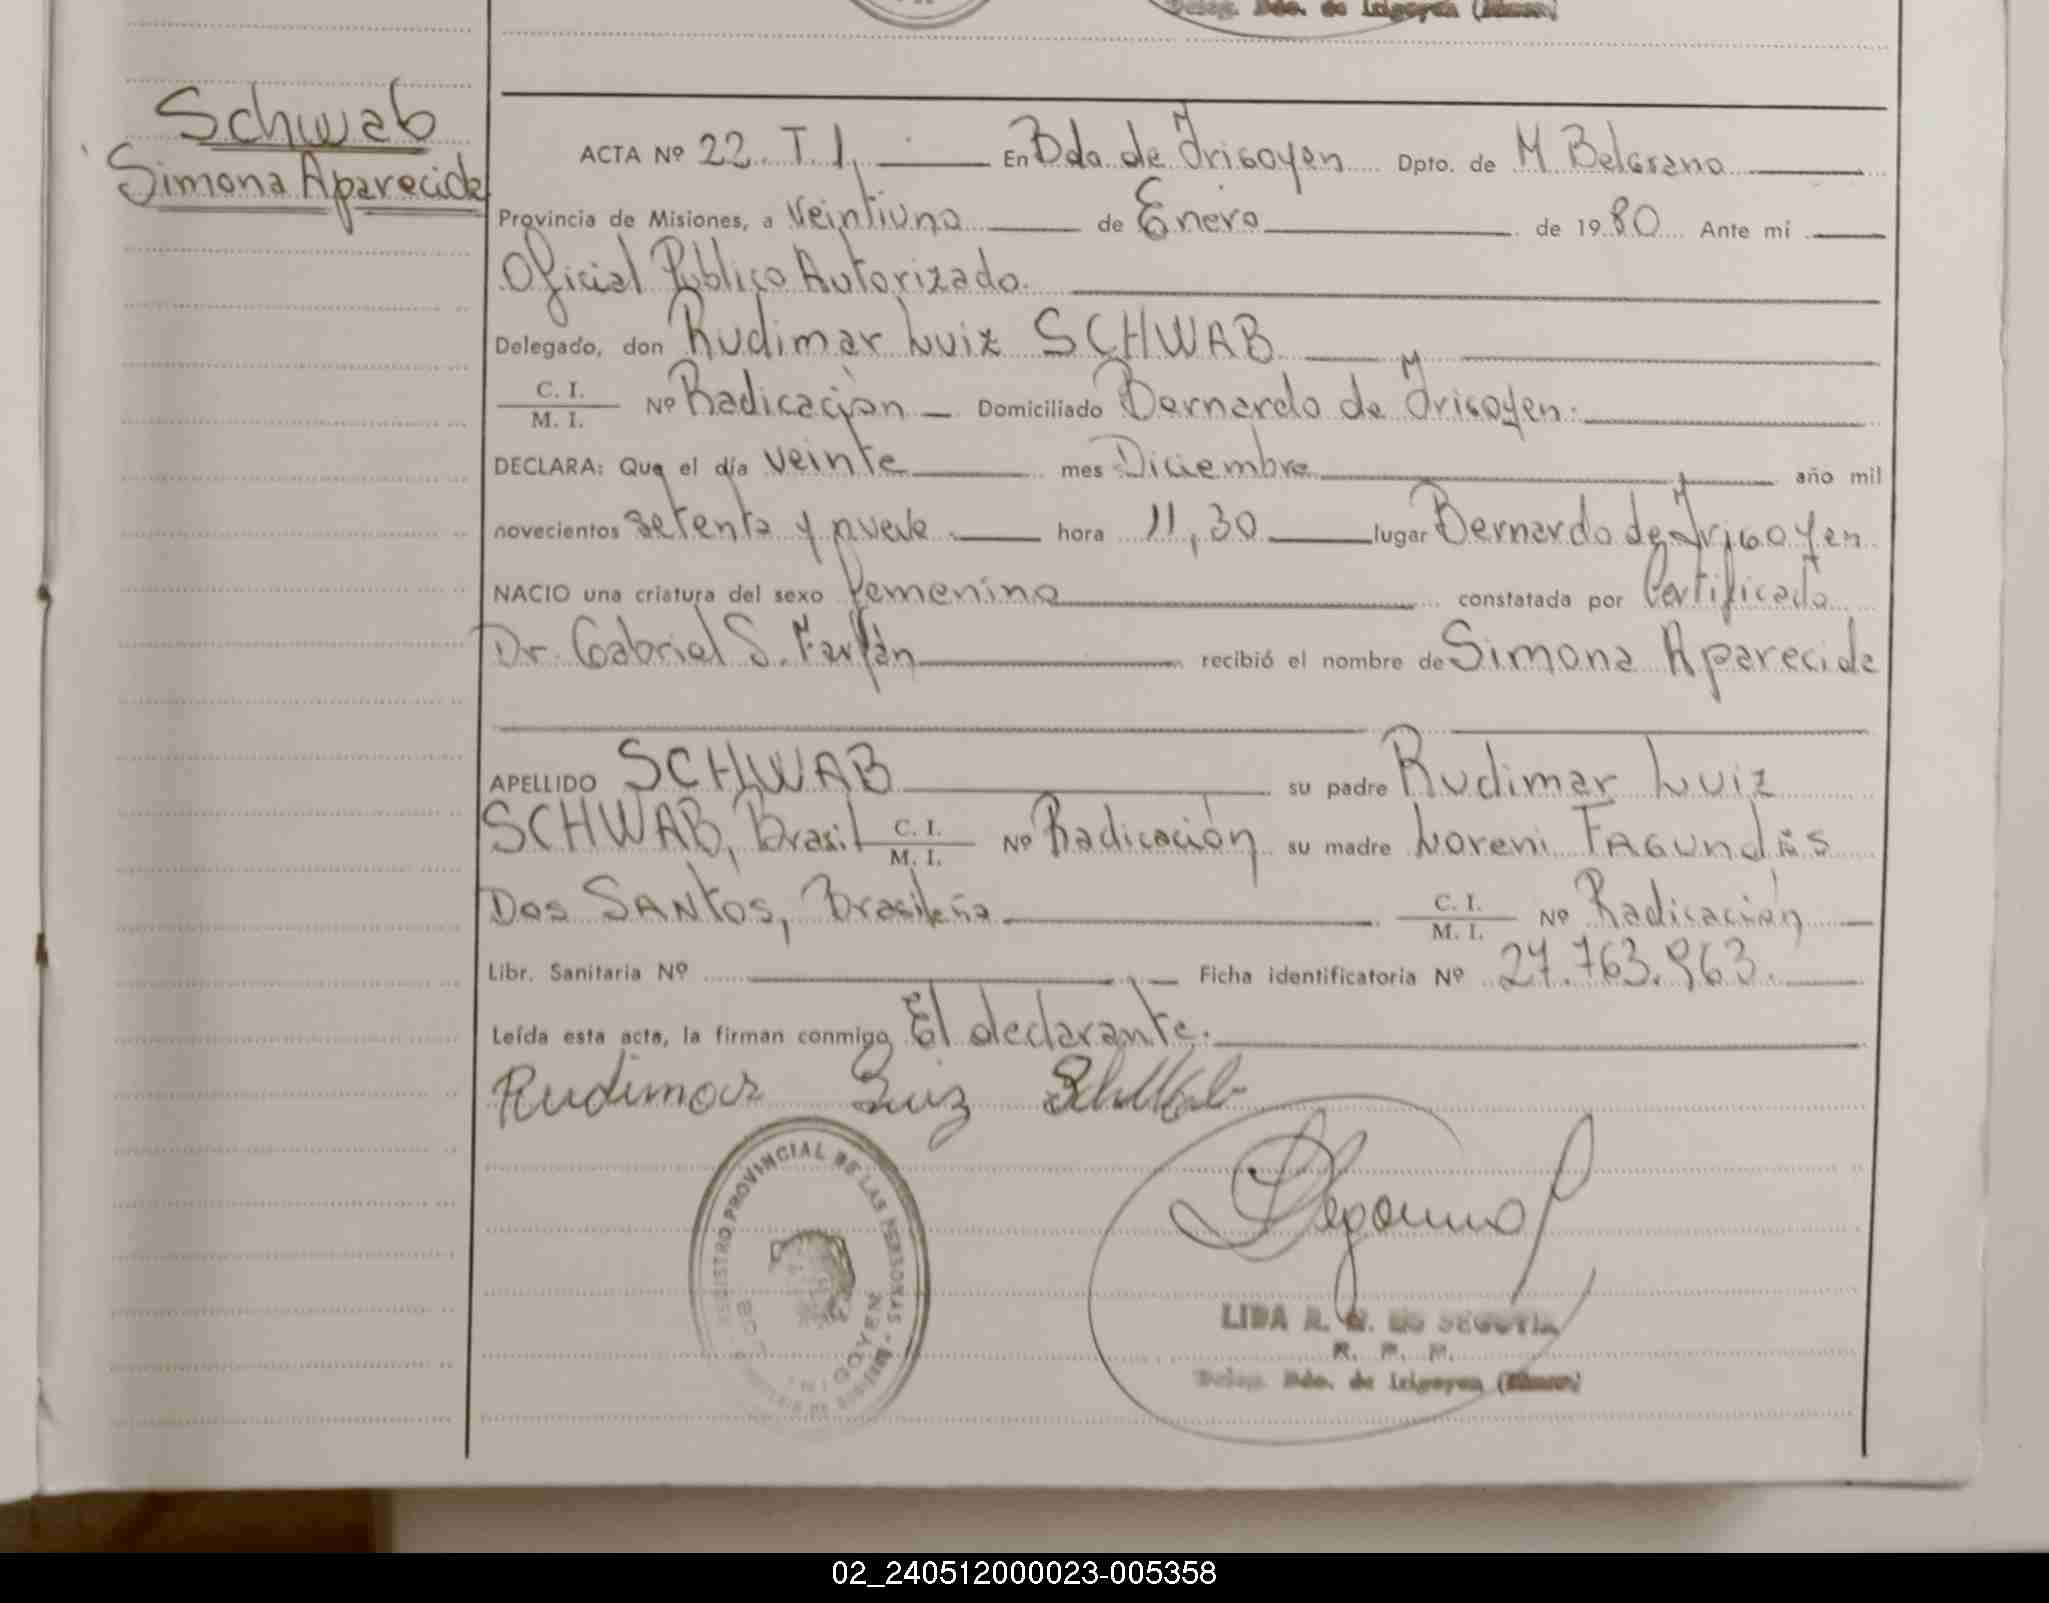 Deleg. Bdo. de Irigoyen (Mnes.)
Schwab
Simona Aparecida
ACTA Nº 22. T I. En Bdo. de Irigoyen Dpto. de M. Belgrano
Provincia de Misiones, a Veintiuno de Enero de 1980 Ante mi
Oficial Público Autorizado.
Delegado, don Rudimar Luiz SCHWAB
C. I.
M. I. Nº Radicación Domiciliado Bernardo de Irigoyen.
DECLARA: Que el día veinte mes Diciembre año mil
novecientos setenta y nueve hora 11,30 lugar Bernardo de Irigoyen
NACIO una criatura del sexo femenino constatada por Certificado
Dr. Gabriel S. Farfán recibió el nombre de Simona Aparecida
APELLIDO SCHWAB su padre Rudimar Luiz
SCHWAB, Brasil C. I. M. I. Nº Radicación su madre Loreni FAGundes
Dos SANtos, Brasileña C. I. M. I. Nº Radicación
Libr. Sanitaria Nº Ficha identificatoria Nº 27.763.963.
Leída esta acta, la firman conmigo El declarante.
Rudimar Luiz Schwab
REGISTRO PROVINCIAL DE LAS PERSONAS
IRIGOYEN
LIDA R. DE SEGOVIA
R. P. P.
Deleg. Bdo. de Irigoyen (Mnes.)
02_240512000023-005358